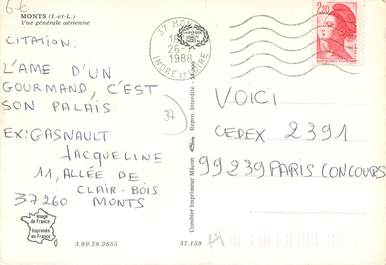 6€
MONTS (I.-et-L.)
Vue générale aérienne
CITATION.
L'AME D'UN
GOURMAND, C'EST
SON PALAIS.
EX: GASNAULT
Jacqueline
11, ALLÉE DE
CLAIR-BOIS
37260 MONTS
37
Image
de France
Imprimée
en France
3.99.78.3855
37.159
Combier Imprimeur Mâcon
Repro. Interdite
37 MONTS
26-
1988
INDRE ET LOIRE
2,20
VOICI
CEDEX 2391
99239 PARIS CONCOURS